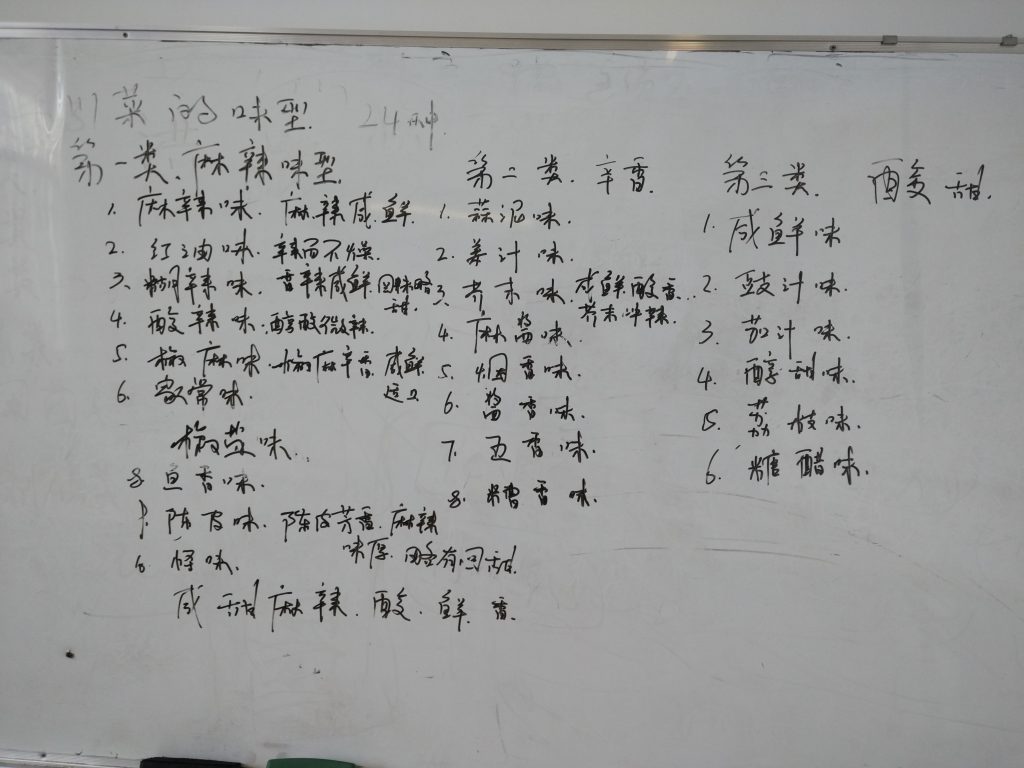 川菜的味型 24种
第一类、麻辣味型
1. 麻辣味. 麻辣咸鲜
2. 红油味. 辣而不燥
3、糊辣味. 香辣咸鲜 回味略甜
4. 酸辣味. 醇酸微辣
5. 椒麻味. 椒麻辛香 咸鲜
6. 家常味.
椒盐味.
8 鱼香味.
9. 陈皮味. 陈皮芳香. 麻辣
味厚. 略有回甜
怪味.
咸甜麻辣. 酸. 鲜 香.
第二类. 辛香
1. 蒜泥味.
2. 姜汁味.
3、芥末味. 咸鲜酸香.
芥末冲辣.
4. 麻酱味.
5. 烟香味.
6. 酱香味.
7. 五香味.
8. 糟香味.
第三类. 酸甜.
1. 咸鲜味
2. 豉汁味.
3. 茄汁味.
4. 醇甜味.
5. 荔枝味.
6. 糖醋味.